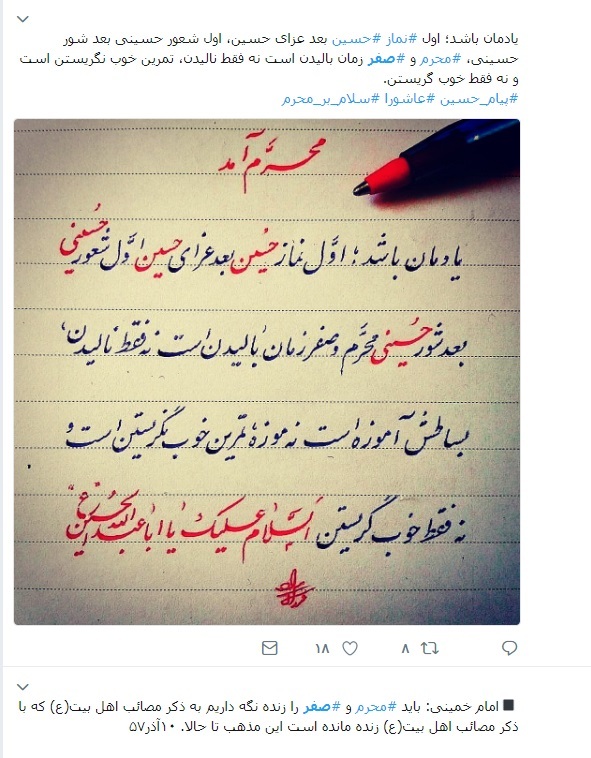 یادمان باشد؛ اول #نماز #حسین بعد عزای حسین، اول شعور حسینی بعد شور
حسینی، #محرم و #صفر زمان بالیدن است نه فقط نالیدن، تمرین خوب نگریستن است
و نه فقط خوب گریستن.
#پیام_حسین #عاشورا #سلام_بر_محرم
محرّم آمد
یادمان باشد؛ اوّل نماز حُسین بعد عزای حسین اوّل شعور حُسینی
بعد شور حُسینی محرّم و صفر زمان بالیدن است نه فقط نالیدن،
بساطش آموزه است نه موزه تمرین خوب نگریستن است و
نه فقط خوب گریستن السَّلامُ عَلیکَ یا اباعبدالله الحُسین(ع)
۱۸ ۸
◼ امام خمینی: باید #محرم و #صفر را زنده نگه داریم به ذکر مصائب اهل بیت(ع) که با
ذکر مصائب اهل بیت(ع) زنده مانده است این مذهب تا حالا. ۱۰آذر۵۷